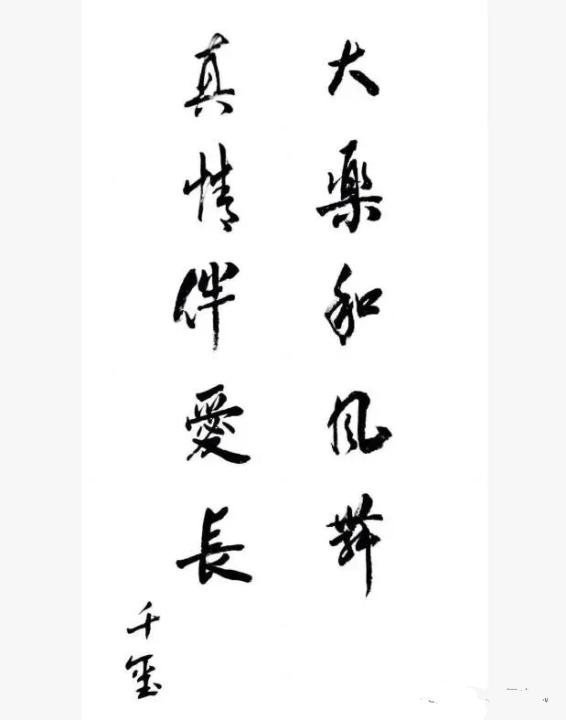 大樂和風舞
真情伴愛長
千璽